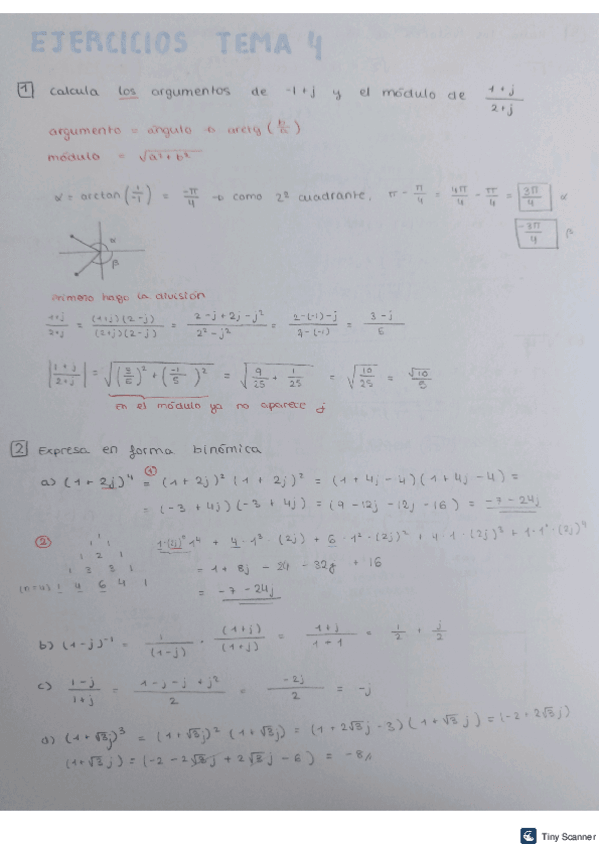 EJERCICIOS TEMA 4
1 Calcula los argumentos de -1+j y el módulo de (1+j)/(2+j)
argumento = angulo → arctg (b/a)
módulo = √(a²+b²)
α = arctan (1/-1) = -π/4 → como 2º cuadrante, π - π/4 = 4π/4 - π/4 = 3π/4 α
-3π/4 β
α
β
Primero hago la división
(1+j)/(2+j) = (1+j)(2-j)/(2+j)(2-j) = (2-j+2j-j²)/(2²-j²) = (2-(-1)-j)/(4-(-1)) = (3-j)/5
|(1+j)/(2+j)| = √((3/5)² + (-1/5)²) = √(9/25 + 1/25) = √(10/25) = √10/5
en el módulo ya no aparece j
2 Expresa en forma binómica
a) (1+2j)⁴ = (1) (1+2j)² (1+2j)² = (1+4j-4)(1+4j-4) =
= (-3+4j)(-3+4j) = (9-12j-12j-16) = -7-24j
(2) 1·(2j)⁰1⁴ + 4·1³·(2j) + 6·1²·(2j)² + 4·1·(2j)³ + 1·1⁰·(2j)⁴
1 1
1 2 1
1 3 3 1 = 1+8j-24-32j+16
(n=4) 1 4 6 4 1 = -7-24j
b) (1-j)⁻¹ = 1/(1-j) · (1+j)/(1+j) = (1+j)/(1+1) = 1/2 + j/2
c) (1-j)/(1+j) = (1-j-j+j²)/2 = -2j/2 = -j
d) (1+√3j)³ = (1+√3j)² (1+√3j) = (1+2√3j-3)(1+√3j) = (-2+2√3j)
(1+√3j) = (-2-2√3j+2√3j-6) = -8//
Tiny Scanner